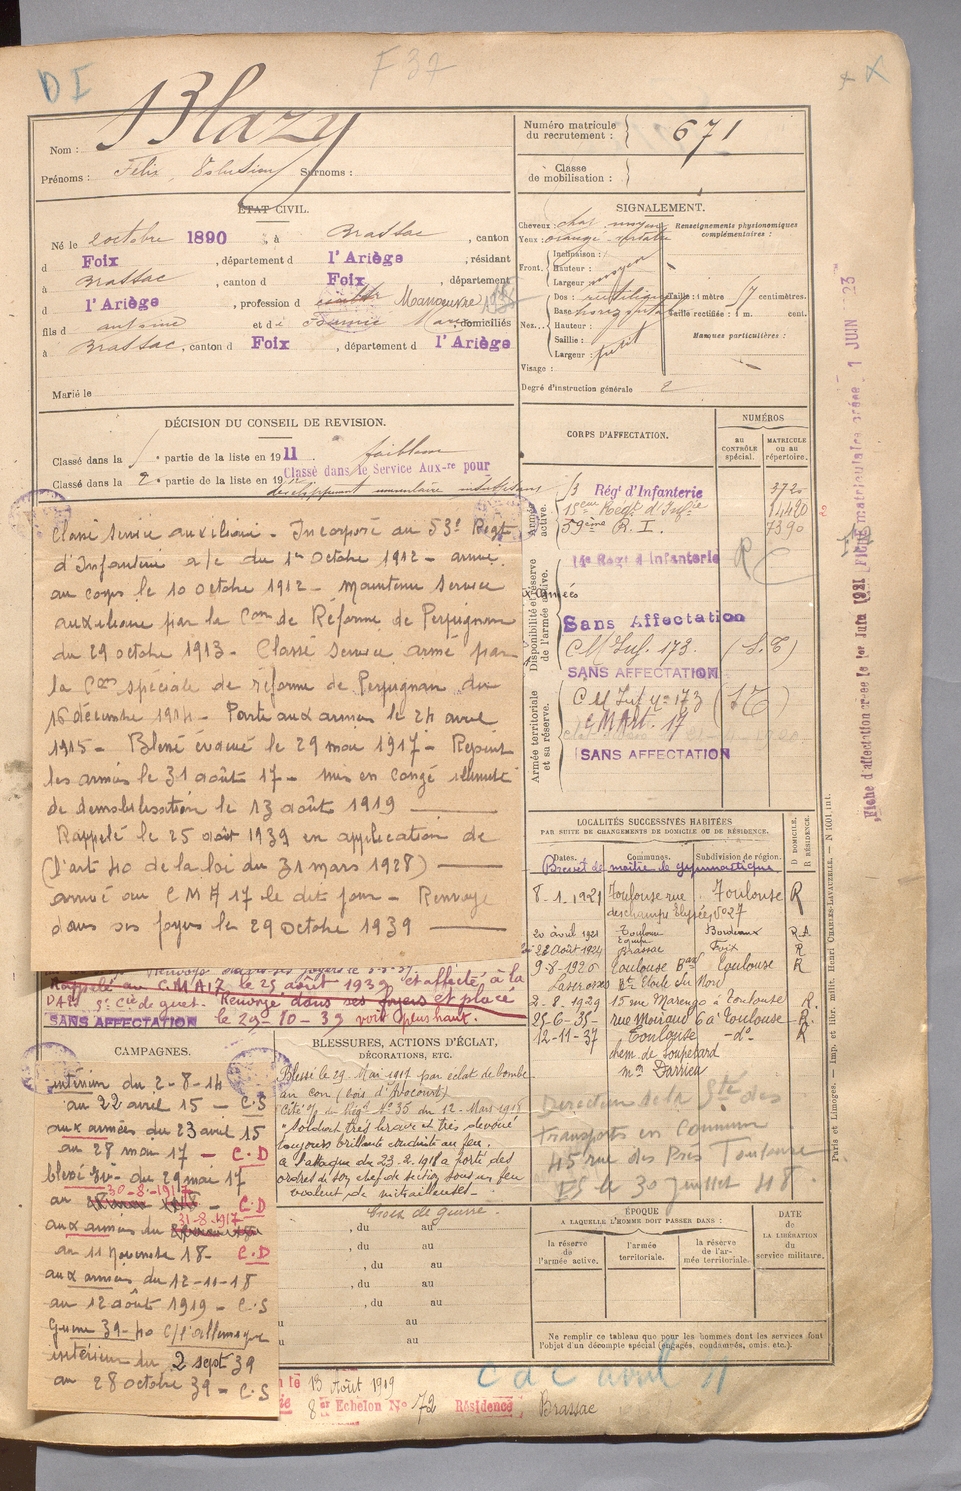 D I
F 37
Nom : Blazy
Prénoms : Félix, Surnoms :
Numéro matricule du recrutement : 671
Classe de mobilisation :
ÉTAT CIVIL.
Né le octobre 1890, à Brassac, canton
d Foix, département d l'Ariège, résidant
à Brassac, canton d Foix, département
d l'Ariège, profession d Manoeuvre
fils d antoine et d Marie, domiciliés
à Brassac, canton d Foix, département d l'Ariège
Marié le
SIGNALEMENT.
Cheveux : chat. moyen
Yeux : orangé
Renseignements physionomiques complémentaires :
Front. Inclinaison :
Hauteur : moyen
Largeur :
Nez. Dos : rectiligne
Base : horizontal
Hauteur :
Saillie :
Largeur : petit
Visage :
Taille : 1 mètre 57 centimètres.
Taille rectifiée : 1 m. cent.
Marques particulières :
Degré d'instruction générale 2
DÉCISION DU CONSEIL DE REVISION.
Classé dans la 5e partie de la liste en 1911 faiblesse
Classé dans la 2e partie de la liste en 19 Classé dans le Service Aux-re pour
développement musculaire insuffisant
Classé service auxiliaire - Incorporé au 53e Régt
d'Infanterie a/c du 1er Octobre 1912 - arrivé
au corps le 10 octobre 1912 - Maintenu service
auxiliaire par la Con de Réforme de Perpignan
du 29 octobre 1913 - Classé service armé par
la Con spéciale de réforme de Perpignan du
16 décembre 1914 - Parti aux armées le 24 avril
1915 - Blessé évacué le 29 mai 1917 - Rejoint
les armées le 31 août 17 - Mis en congé illimité
de démobilisation le 13 août 1919
Rappelé le 25 août 1939 en application de
(l'art 40 de la loi du 31 mars 1928)
arrivé au C M A 17 le dit jour - Renvoyé
dans ses foyers le 29 octobre 1939
Rappelé au C.M.A 17 le 25 août 1939 et affecté à la
DAT. 3e Cie de guet. Renvoyé dans ses foyers et placé
SANS AFFECTATION le 29-10-39 voir plus haut.
CORPS D'AFFECTATION.
NUMÉROS
AU CONTRÔLE SPÉCIAL.
MATRICULE OU AU RÉPERTOIRE.
Armée active.
53 Régt d'Infanterie 3720
15ème Régt d'Infie 14420
59ème R. I. 7390
Disponibilité et réserve de l'armée active.
14e Régt d'Infanterie
R C
Sans Affectation
C M Inf. 173. (S.T)
SANS AFFECTATION
Armée territoriale et sa réserve.
C M Inf no 173 (S T)
C M Art. 17
SANS AFFECTATION
Fiche d'affectation créée le 1er Juin 1921
Fiche matriculaire créée 1 JUIN 23
LOCALITÉS SUCCESSIVES HABITÉES
PAR SUITE DE CHANGEMENTS DE DOMICILE OU DE RÉSIDENCE.
Dates. Communes. Subdivision de région. D DOMICILE. R RÉSIDENCE.
Brevet de maître de gymnastique
8-1-1921 Toulouse rue Toulouse R
des champs Elysées no 27
20 avril 1921 Bordeaux R.A
22 Août 1924 Brassac Foix R
9-8-1926 Toulouse Bard Toulouse R
Lascrosses Bt Etoile du Nord
2-8-1929 15 rue Marengo à Toulouse R.
25-6-35 rue Moiraud 6 à Toulouse R.
12-11-37 Toulouse do R
chem. de Loupetard
mon Darrieu
Direction de la Sté des
Transports en commun
45 rue des Prés Toulouse
le 30 Juillet 48.
CAMPAGNES.
intérieur du 2-8-14
au 22 avril 15 - C.S
aux armées du 23 avril 15
au 28 mai 17 - C.D
blessé év. du 29 mai 17
au 30-8-1917 C.D
aux armées du 31-8-1917
au 11 Novembre 18 - C.D
aux armées du 12-11-18
au 12 août 1919 - C.S
Guerre 39-40 c/ l'allemagne
intérieur du 2 sept 39
au 28 octobre 39 - C.S
BLESSURES, ACTIONS D'ÉCLAT, DÉCORATIONS, ETC.
Blessé le 29 Mai 1917 par éclat de bombe
au cou (bois d'Avocourt)
Cité o/ du Régt No 35 du 12 Mars 1918
"Soldat très brave et très dévoué
toujours brillante conduite au feu.
a l'attaque du 23.2.1918 a porté des
ordres de son chef de section sous un feu
violent de mitrailleuses -
Croix de guerre.
, du au
, du au
, du au
, du au
, du au
au
au
ÉPOQUE
A LAQUELLE L'HOMME DOIT PASSER DANS :
la réserve de l'armée active.
l'armée territoriale.
la réserve de l'armée territoriale.
DATE de LA LIBÉRATION du service militaire.
Ne remplir ce tableau que pour les hommes dont les services font l'objet d'un décompte spécial (engagés, condamnés, omis, etc.).
Paris et Limoges. — Imp. et libr. milit. Henri CHARLES-LAVAUZELLE. — N 1001 int.
13 Août 1919
8er Echelon No 72 Résidence : Brassac